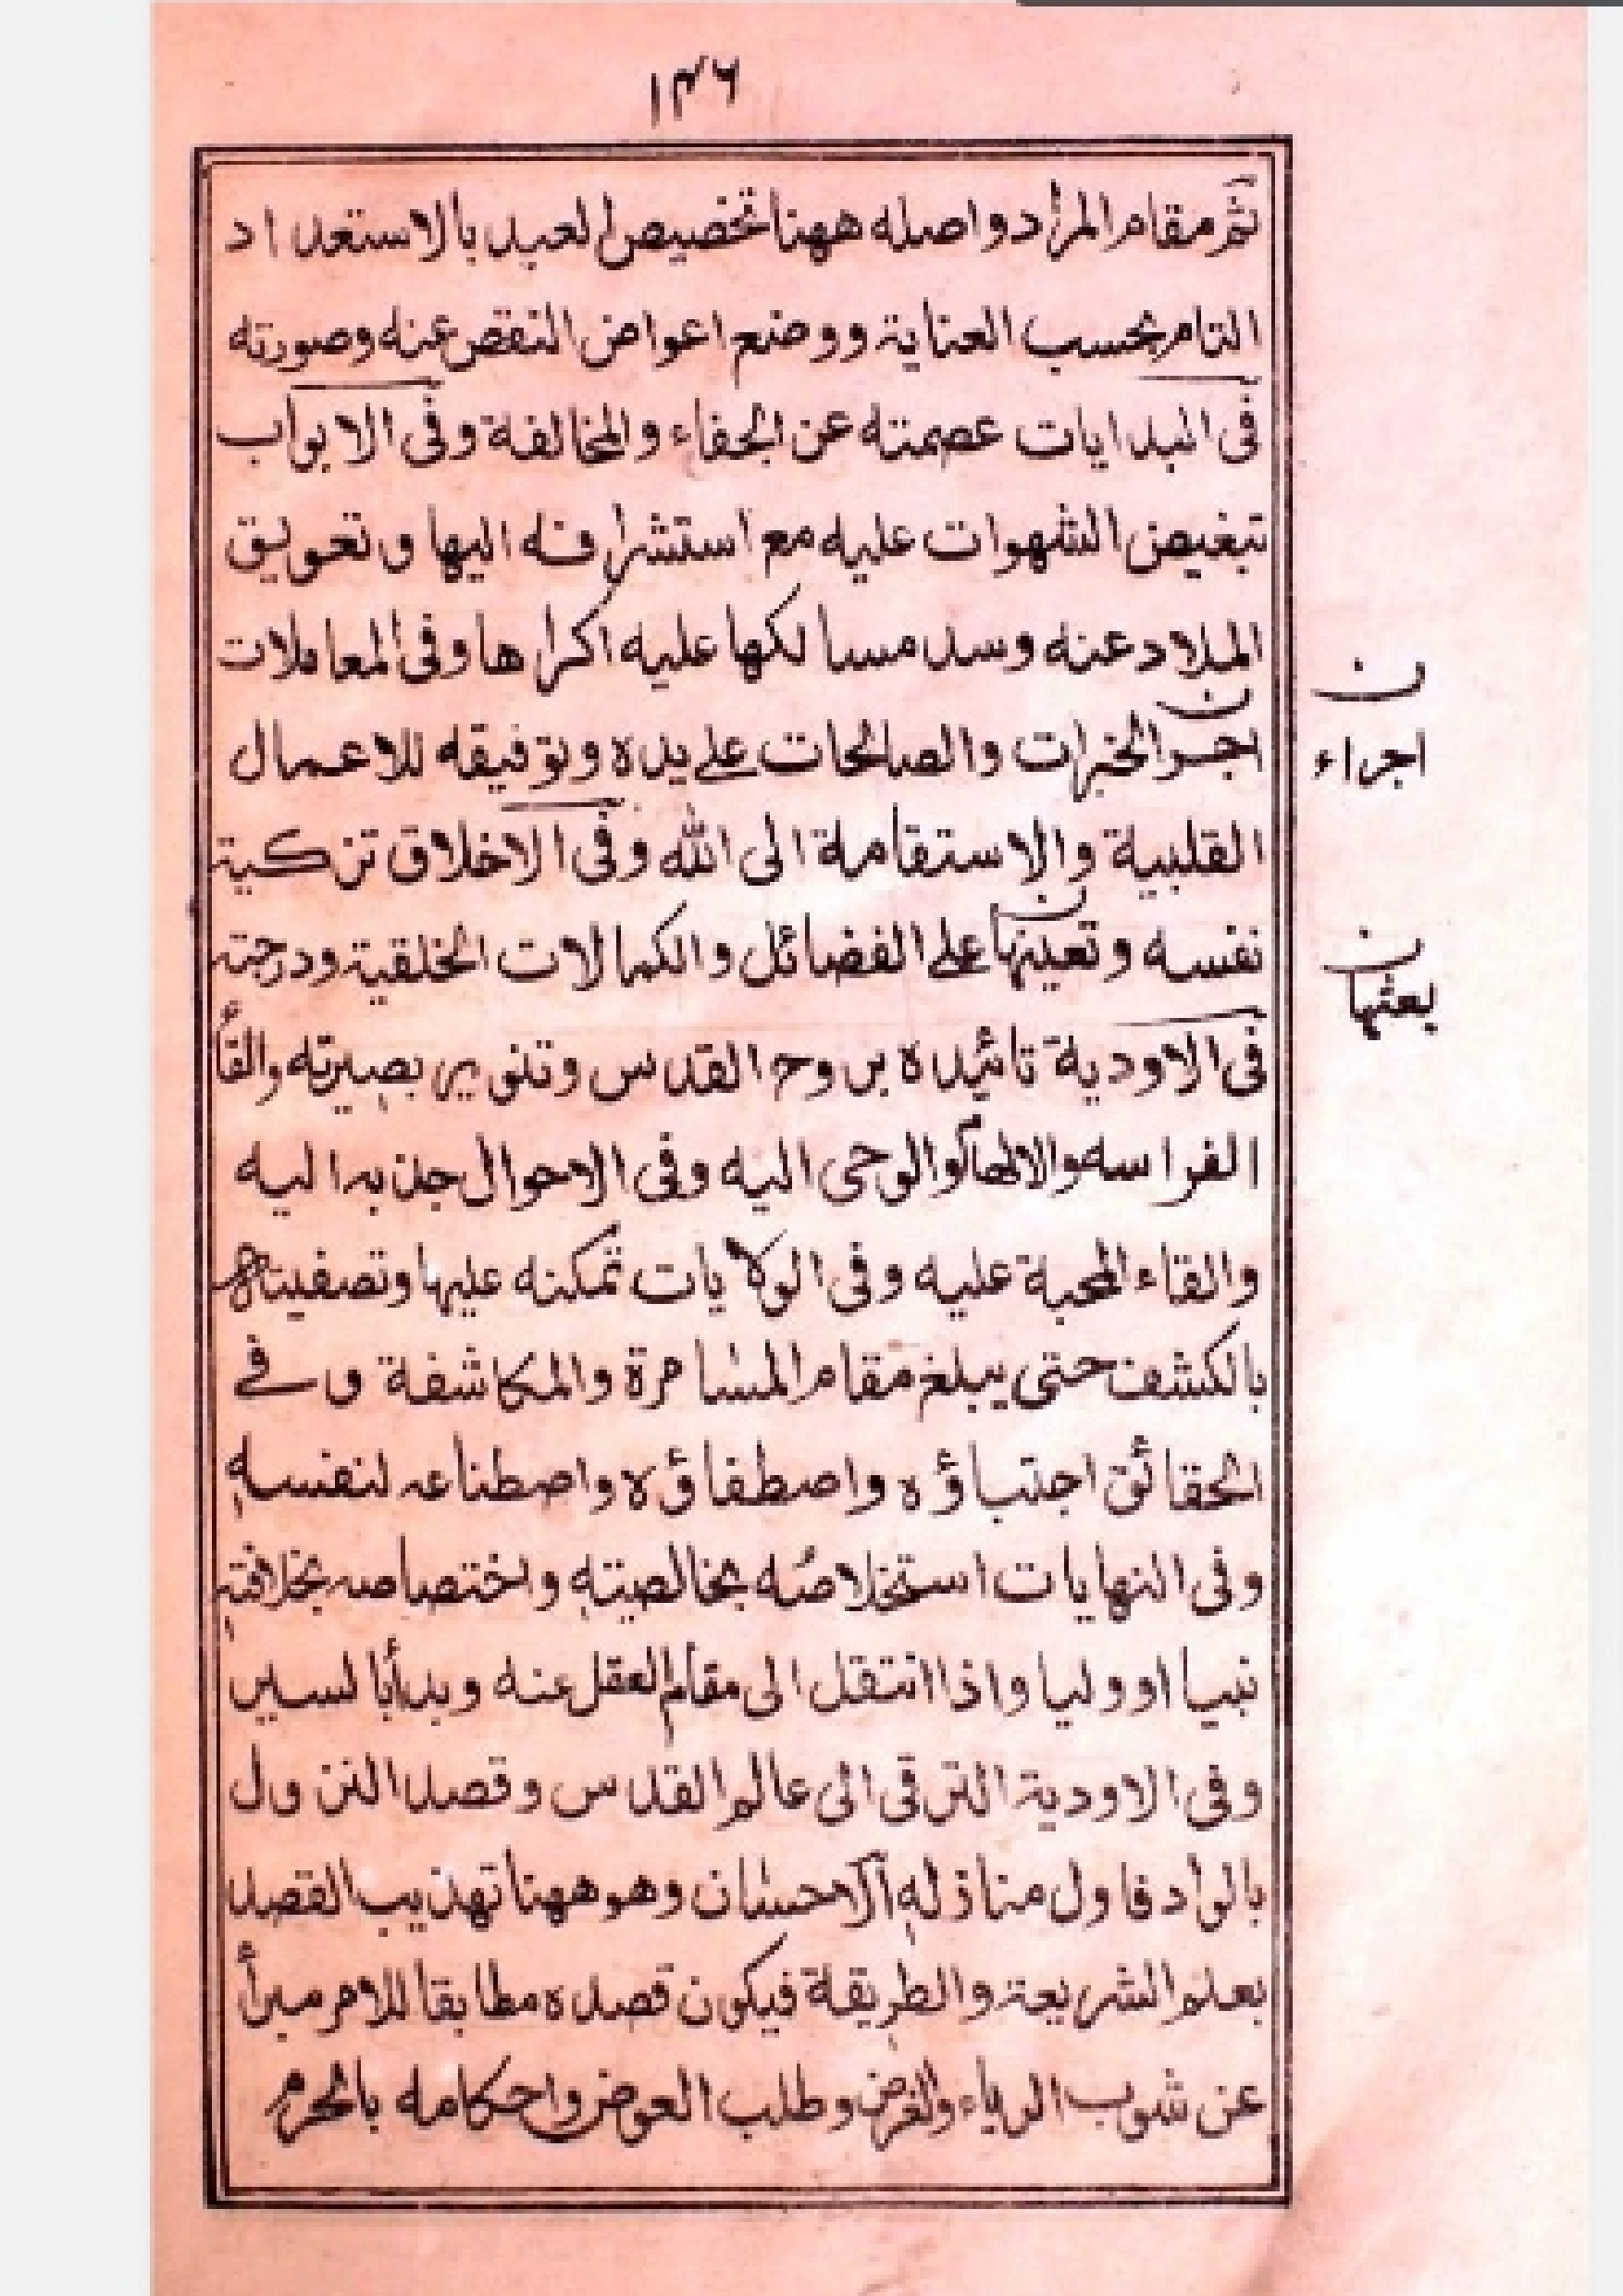 ۱۴۶
ثم مقام المراد واصله ههنا تخصيص العبد بالاستعداد
التام بحسب العناية ووضع اعواض النقص عنه وصورته
فى البدايات عصمته عن الجفاء والمخالفة وفى الابواب
تبغيض الشهوات عليه مع استشرافه اليها وتعويق
الملاد عنه وسد مسالكها عليه اكراها وفى المعاملات
اجر الخيرات والصالحات على يده وتوفيقه للاعمال
ن
اجراء
القلبية والاستقامة الى الله وفى الاخلاق تزكية
نفسه وتعينها على الفضائل والكمالات الخلقية ودرجته
ن
بعثها
فى الاودية تائيده بروح القدس وتنوير بصيرته والقاء
الفراسه والالهام والوحى اليه وفى الاحوال جذبه اليه
والقاء المحبة عليه وفى الولايات تمكنه عليها وتصفيتاه
بالكشف حتى يبلغ مقام المسامرة والمكاشفة وفے
الحقائق اجتباؤه واصطفاؤه واصطناعه لنفسه
وفى النهايات استخلاصه بخالصيته واختصاصه بخلافته
نبيا اووليا واذا انتقل الى مقام العقل عنه وبدأ بالسير
وفى الاودية الترقى الى عالم القدس وقصد النزول
بالواد فاول منازله الاحسان وهو ههنا تهذيب القصد
بعلم الشريعة والطريقة فيكون قصده مطابقا للامر مبرأ
عن شوب الرياء والغرض وطلب العوض واحكامه بالمحرم